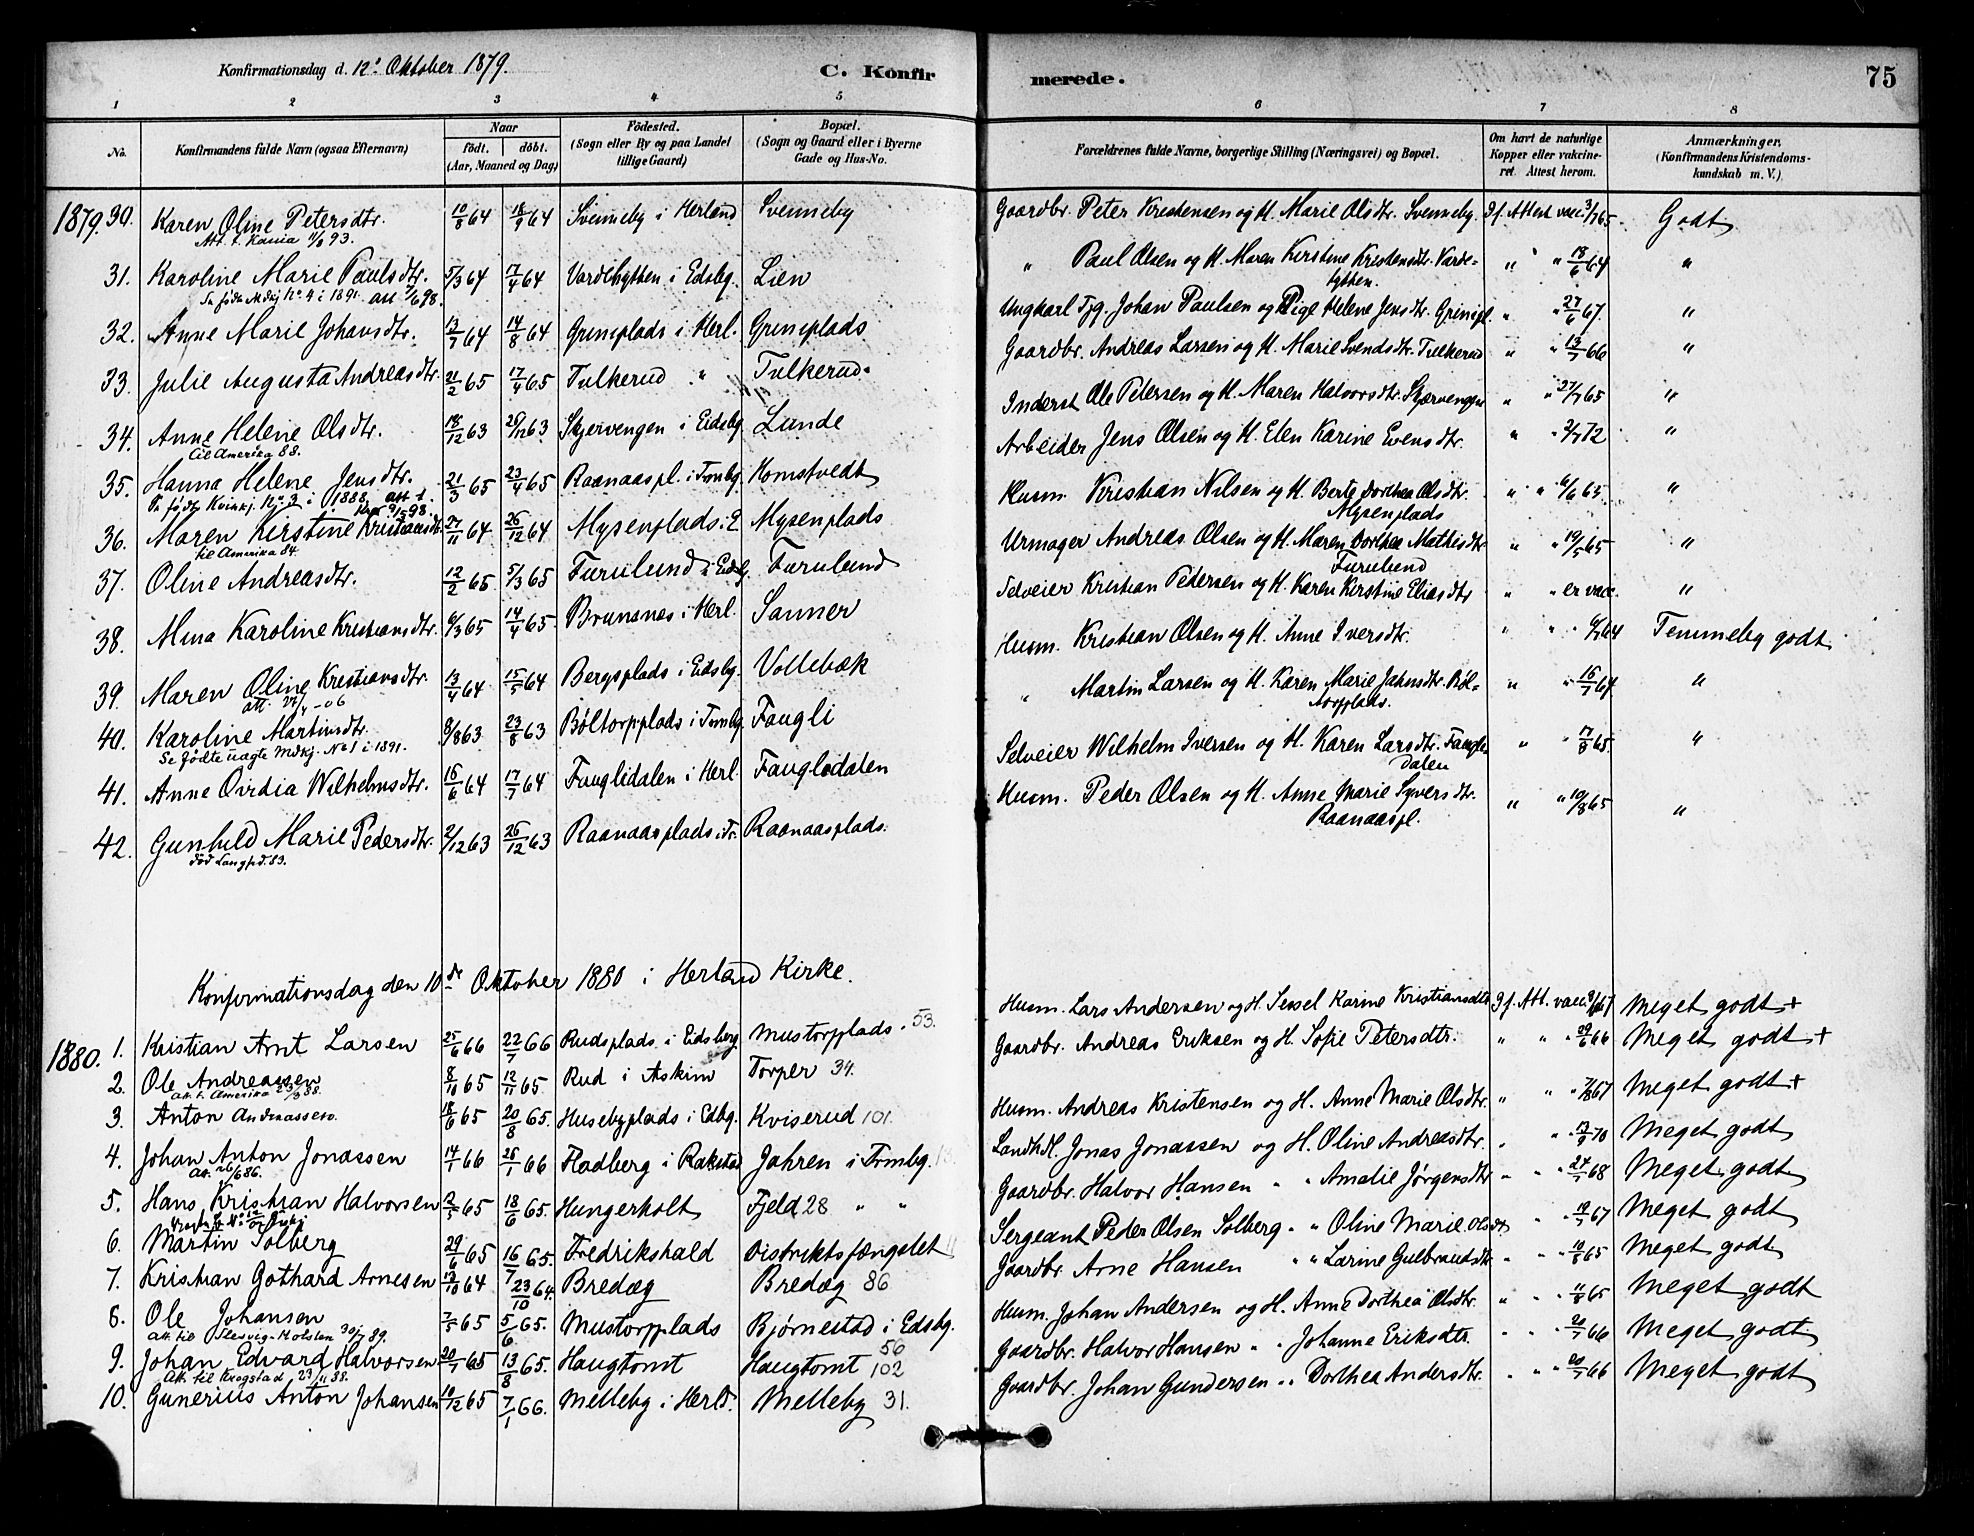 Konfirmationsdag d. 12' Oktober 1879.
C. Konfirmerede.
75
1 2 3 4 5 6 7 8
No.
Konfirmandens fulde Navn (ogsaa Efternavn)
Naar födt. döbt. (Aar, Maaned og Dag)
Födested. (Sogn eller By og paa Landet tillige Gaard)
Bopæl. (Sogn og Gaard eller i Byerne Gade og Hus-No.
Forældrenes fulde Navne, borgerlige Stilling (Næringsvei) og Bopæl.
Om havt de naturlige Kopper eller vakcineret. Attest herom.
Anmærkninger. (Konfirmandens Kristendomskundskab m. V.)
1879. 30. Karen Oline Petersdtr. 10/8 64 18/9 64 Svenneby i Herland Svenneby Gaardbr. Peter Kristensen og H. Marie Olsdtr. Svenneby. If. Attest vacc. 3/7 65. Godt
Att. t. Kania 11/8 93.
31. Karoline Marie Paulsdtr. 5/3 64 17/4 64 Vardehytten i Edsbg. Lien " Paul Olsen og H. Maren Kirstine Kristensdtr. Vardehytten. " " 18/6 64 "
Se fødte Mdkj No. 4 i 1891. att 7/6 98.
32. Anne Marie Johansdtr. 13/7 64 14/8 64 Grimsplads i Herl. Grimsplads Ungkarl Tjg. Johan Paulsen og Pige Helene Jensdtr. Grimspl. " " 27/6 67. "
33. Julie Augusta Andreasdtr. 21/2 65 17/4 65 Tulkerud " Tulkerud Gaardbr. Andreas Larsen og H. Marie Svendsdtr. Tulkerud " " 13/7 66 "
34. Anne Helene Olsdtr. 18/12 63 26/12 63 Skjervengen i Eidsbg Lunde Inderst Ole Petersen og H. Maren Halvorsdtr. Skjærvengen " " 27/7 65 "
til Amerika 88.
35. Hanna Helene Jensdtr. 21/3 65 23/4 65 Raanaaspl. i Trømbg. Komstvedt Arbeider Jens Olsen og H. Elen Karine Evensdtr. " " 2/7 72 "
Se fødte Kvinkj. No. 3 i 1888. att t.
36. Maren Kirstine Kristiansdtr. 27/11 64 26/12 64 Mysenplads i E Mysenplads Husm. Kristian Nilsen og H. Berte Dorthea Olsdtr. Mysenplads " " 6/6 65. "
til Amerika 84.
37. Oline Andreasdtr. 12/2 65 5/3 65 Furulund i Eidsbg. Furulund Urmager Andreas Olsen og H. Maren Dorthea Mathisdtr Furulund " " 19/5 65 "
38. Mina Karoline Kristiansdtr. 6/3 65 14/4 65. Brunsnes i Herl. Sanner Selveier Kristian Pedersen og H. Karen Kirstine Eliasdtr " " er vacc. "
39. Maren Oline Kristiansdtr 13/4 64 15/5 64 Bergsplads i Eidsbg. Vollebæk Husm. Kristian Olsen og H. Anne Iversdtr. " " 6/7 64 Temmelig godt
40. Karoline Martinsdtr. 8/8 63 23/8 63 Bøltorpplads i Trømbg. Faugli " Martin Larsen og H. Karen Marie Jahnsdtr. Bøltorpplads. " " 16/7 64 "
Se fødte uægte Mdkj. No 1 i 1891.
41. Anne Ovidia Wilhelmsdtr. 16/6 64 17/7 64 Fauglidalen i Herl Fauglidalen Selveier Wilhelm Iversen og H. Karen Larsdtr. Fauglidalen " " 17/8 65. "
42. Gunhild Marie Pedersdtr. 2/12 63 26/12 63 Raanaasplads i Tr. Raanaasplads. Husm. Peder Olsen og H. Anne Marie Syversdtr. Raanaaspl. " " 10/8 65 "
død Langpd. 83.
Konfirmationsdag den 10de Oktober 1880 i Herland Kirke.
1880. 1. Kristian Arnt Larsen 25/6 66 22/7 66 Rudsplads i Eidsberg Mustorpplads 53. Husm. Lars Andersen og H. Sessel Karine Kristiansdtr If. Att. vacc. Meget godt +
2. Ole Andreassen 8/10 65 12/11 65 Rud i Askim Torper 34. Gaardbr. Andreas Eriksen og H. Sofie Petersdtr. " " 29/6 66 Meget godt +
att. t. Amerika 23/3 88.
3. Anton Andreassen. 18/6 65 20/8 65. Husebyplads i Edbg. Kviserud 101. Husm. Andreas Kristensen og H. Anne Marie Olsdtr. " " 7/8 67 Meget godt +
4. Johan Anton Jonassen 14/1 66 28/1 66 Fladberg i Rakstad Jahren i Trømbg. Landhdl. Jonas Jonassen og H. Oline Andreasdtr. " " 13/9 70 Meget godt
Att. 26/6 86.
5. Hans Kristian Halvorsen 2/5 65 18/6 65. Hungerholt Fjeld 28 " " Gaardbr. Halvor Hansen " " Amalie Jørgensdtr " " 24/7 68 Meget godt
6. Martin Solberg 29/6 65 16/7 65. Fredrikshald Distriktsfængslet Sergeant Peder Olsen Solberg " " Oline Marie Olsdtr " 19/7 67 Meget godt
7. Kristian Gothard Arnesen 12/10 64 23/10 64. Bredæg Bredæg 86 Gaardbr. Arne Hansen " " Larine Gulbrandsdtr. " " 10/8 65 Meget godt
8. Ole Johansen 7/5 65 5/6 65. Mustorpplads Bjørnestad i Edsbg. 56 Husm. Johan Andersen og H. Anne Dorthea Olsdtr. " " 11/8 65 Meget godt
att. til Slesvig-Holsten 30/7 89.
9. Johan Edvard Halvorsen 20/7 65 13/8 65. Haugtomt Haugtomt 102 Gaardbr. Halvor Hansen " " Johanne Eriksdtr. " " 20/7 66 Meget godt
Att. til Krogstad 23/11 88.
10. Gunerius Anton Johansen 10/12 65 7/1 66. Melleby i Herld. Melleby 31. Gaardbr. Johan Gundersen " " Dorthea Andersdtr. " " 20/7 66 Meget godt